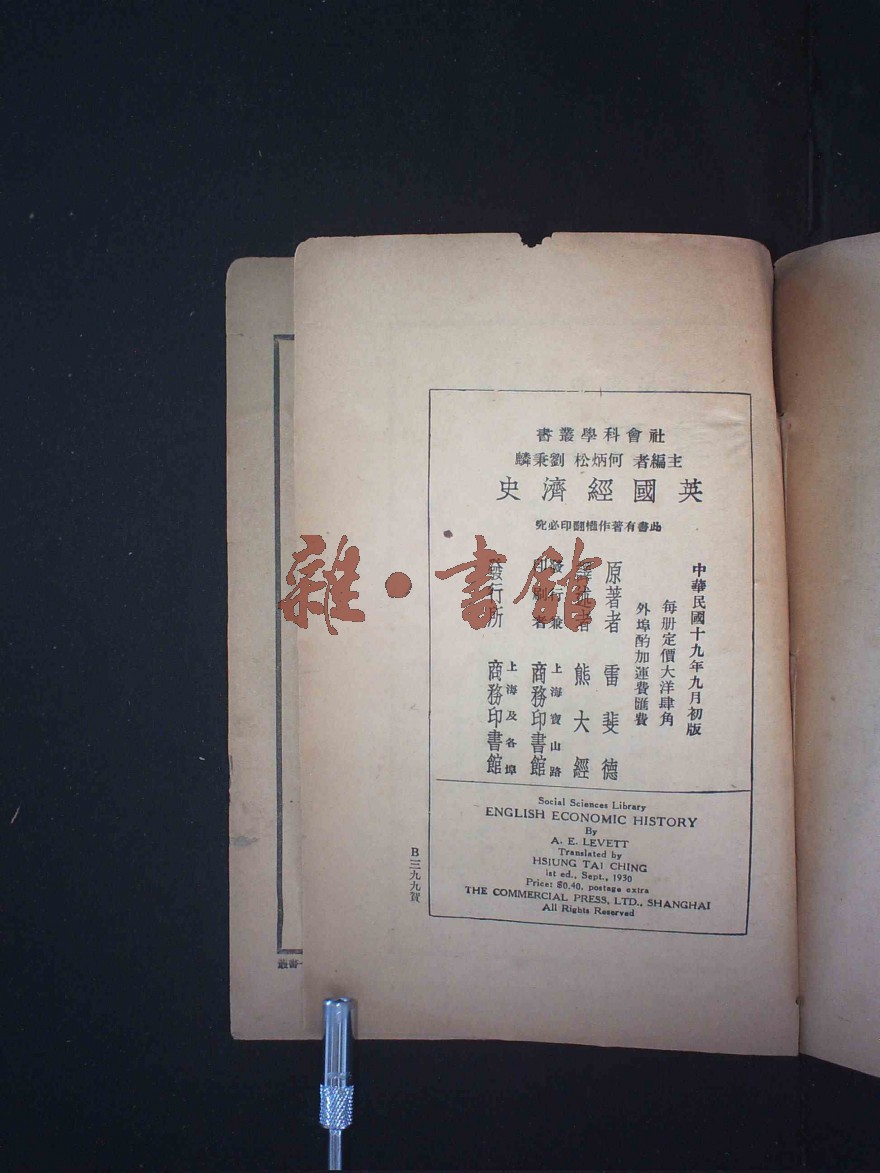 社會科學叢書
主編者 何炳松 劉秉麟
英國經濟史
此書有著作權翻印必究
中華民國十九年九月初版
每册定價大洋肆角
外埠酌加運費匯費
原著者 雷斐德
譯述者 熊大經
發行兼印刷者 上海寶山路 商務印書館
發行所 上海及各埠 商務印書館
Social Sciences Library
ENGLISH ECONOMIC HISTORY
By
A. E. LEVETT
Translated by
HSIUNG TAI CHING
1st ed., Sept., 1930
Price: $0.40, postage extra
THE COMMERCIAL PRESS, LTD., SHANGHAI
All Rights Reserved
B三九九賀
雜·書館